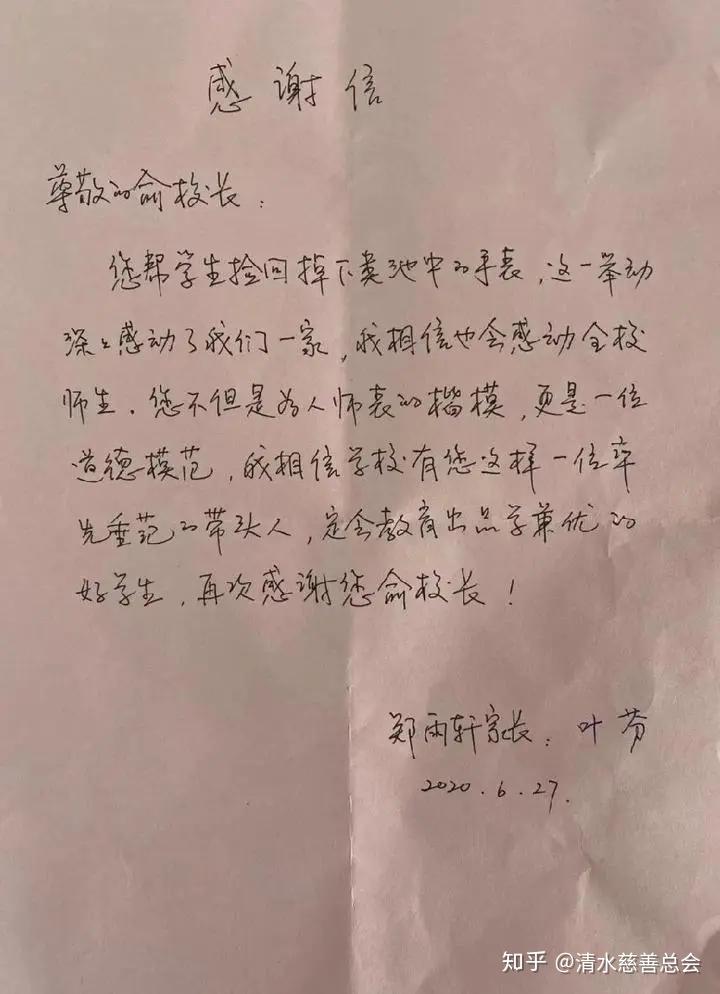 感谢信
尊敬的俞校长：
您帮学生捡回掉下粪池中的手表，这一举动
深深感动了我们一家，我相信也会感动全校
师生。您不但是为人师表的楷模，更是一位
道德模范，我相信学校有您这样一位率
先垂范的带头人，定会教育出品学兼优的
好学生，再次感谢您俞校长！
郑雨轩家长：叶芬
2020.6.27.
知乎 @清水慈善总会